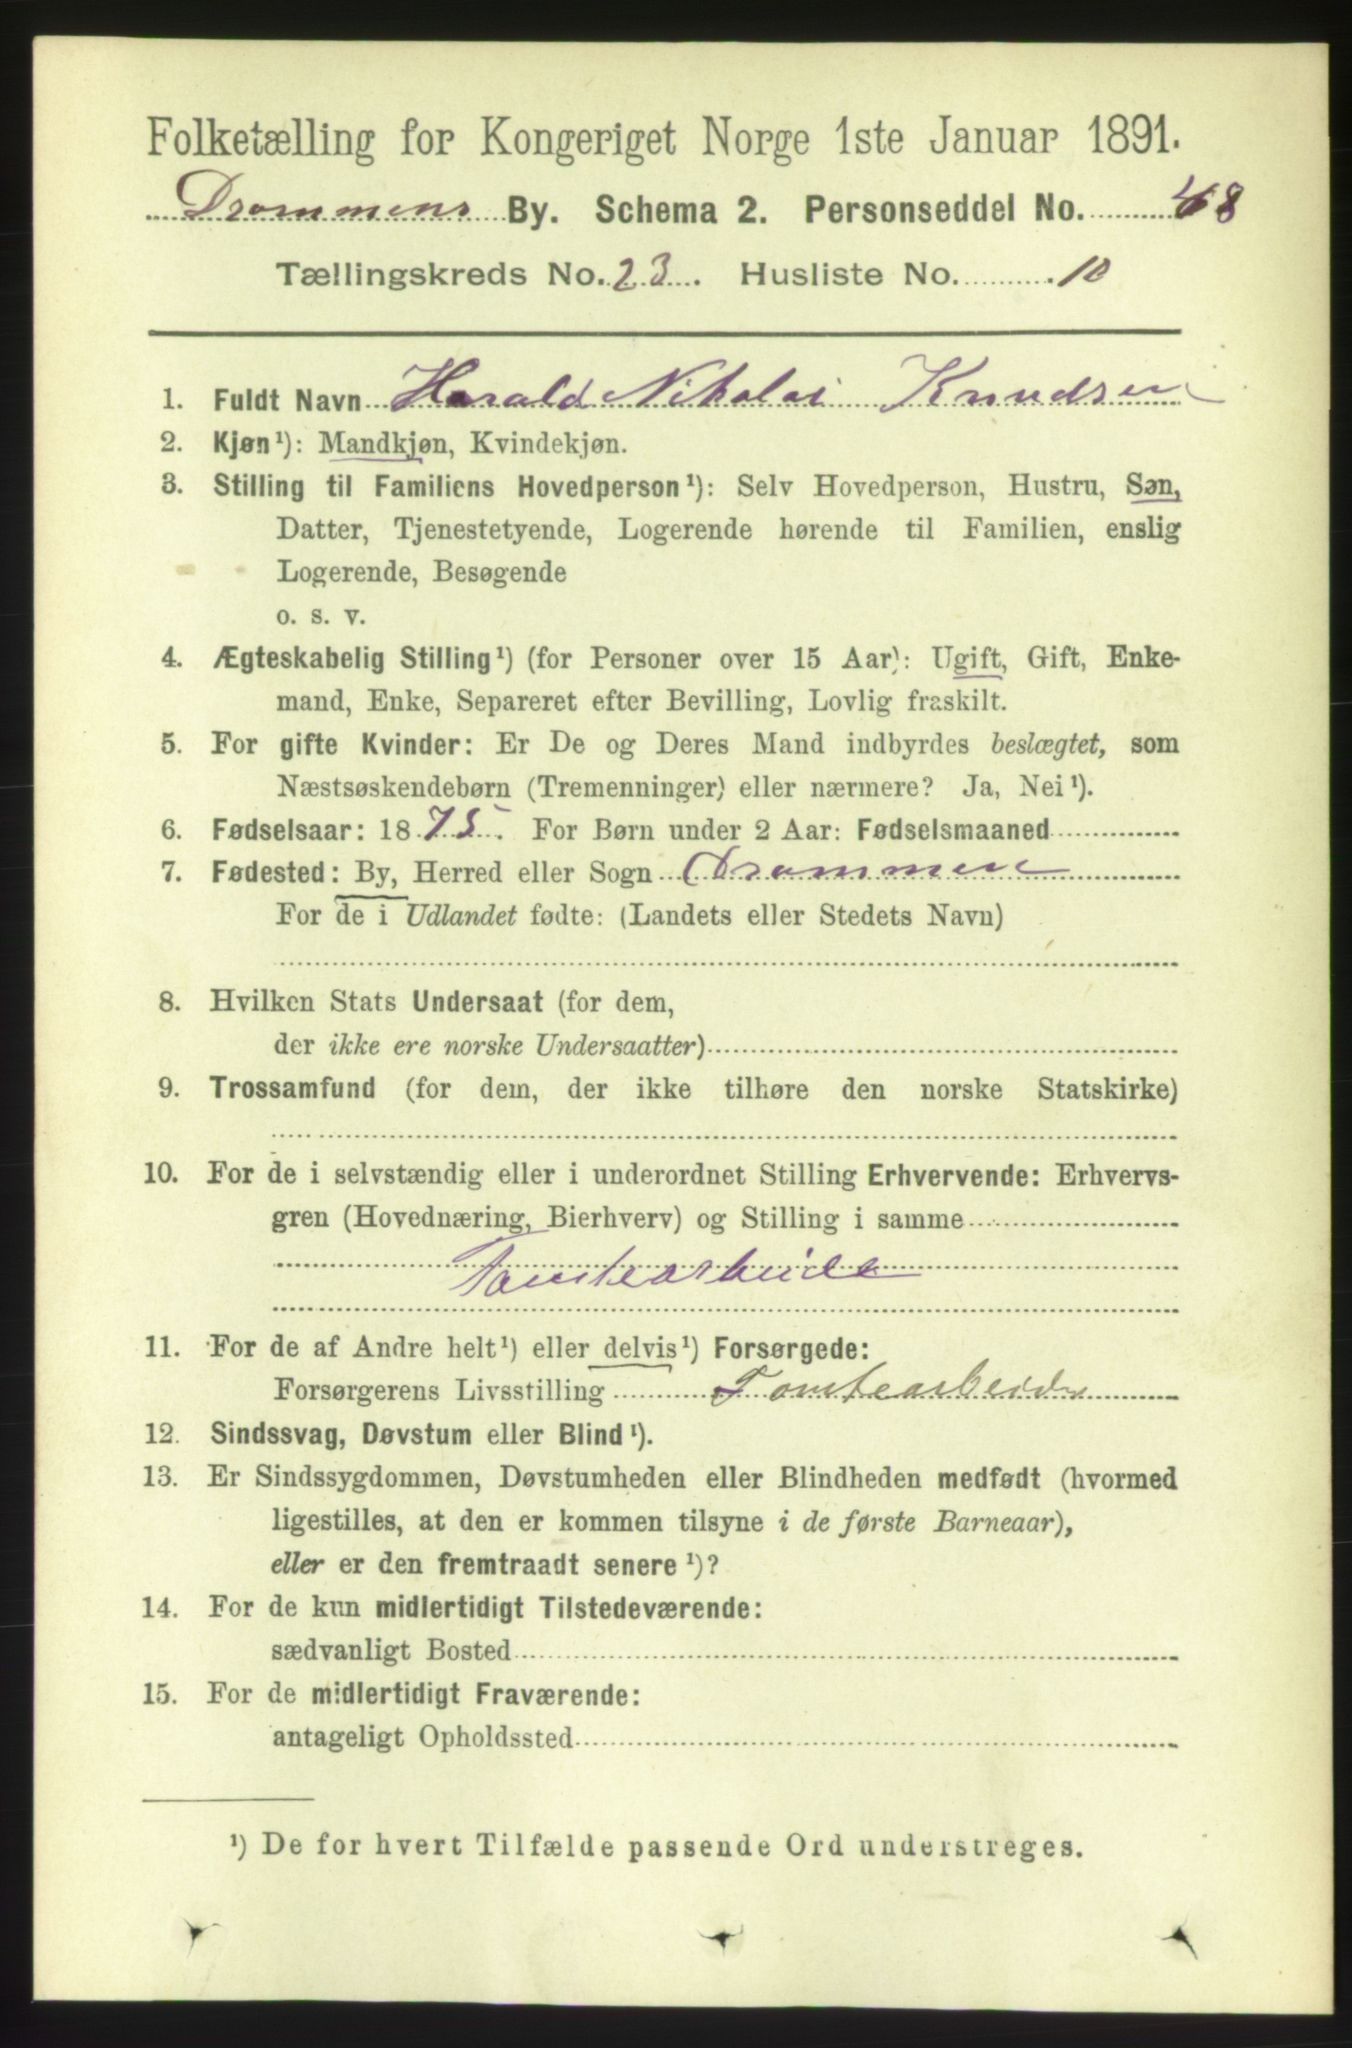 Folketælling for Kongeriget Norge 1ste Januar 1891.
Drammens By. Schema 2. Personseddel No. 48
Tællingskreds No. 23. Husliste No. 10
1. Fuldt Navn Harald Nikolai Knudsen
2. Kjøn¹): Mandkjøn, Kvindekjøn.
3. Stilling til Familiens Hovedperson¹): Selv Hovedperson, Hustru, Søn,
Datter, Tjenestetyende, Logerende hørende til Familien, enslig
Logerende, Besøgende
o. s. v.
4. Ægteskabelig Stilling¹) (for Personer over 15 Aar): Ugift, Gift, Enke-
mand, Enke, Separeret efter Bevilling, Lovlig fraskilt.
5. For gifte Kvinder: Er De og Deres Mand indbyrdes beslægtet, som
Næstsøskendebørn (Tremenninger) eller nærmere? Ja, Nei¹).
6. Fødselsaar: 1875. For Børn under 2 Aar: Fødselsmaaned
7. Fødested: By, Herred eller Sogn Drammen
For de i Udlandet fødte: (Landets eller Stedets Navn)
8. Hvilken Stats Undersaat (for dem,
der ikke ere norske Undersaatter)
9. Trossamfund (for dem, der ikke tilhøre den norske Statskirke)
10. For de i selvstændig eller i underordnet Stilling Erhvervende: Erhvervs-
gren (Hovednæring, Bierhverv) og Stilling i samme
Tomtearbeide
11. For de af Andre helt¹) eller delvis¹) Forsørgede:
Forsørgerens Livsstilling Tomtearbeider
12. Sindssvag, Døvstum eller Blind¹).
13. Er Sindssygdommen, Døvstumheden eller Blindheden medfødt (hvormed
ligestilles, at den er kommen tilsyne i de første Barneaar),
eller er den fremtraadt senere¹)?
14. For de kun midlertidigt Tilstedeværende:
sædvanligt Bosted
15. For de midlertidigt Fraværende:
antageligt Opholdssted
¹) De for hvert Tilfælde passende Ord understreges.